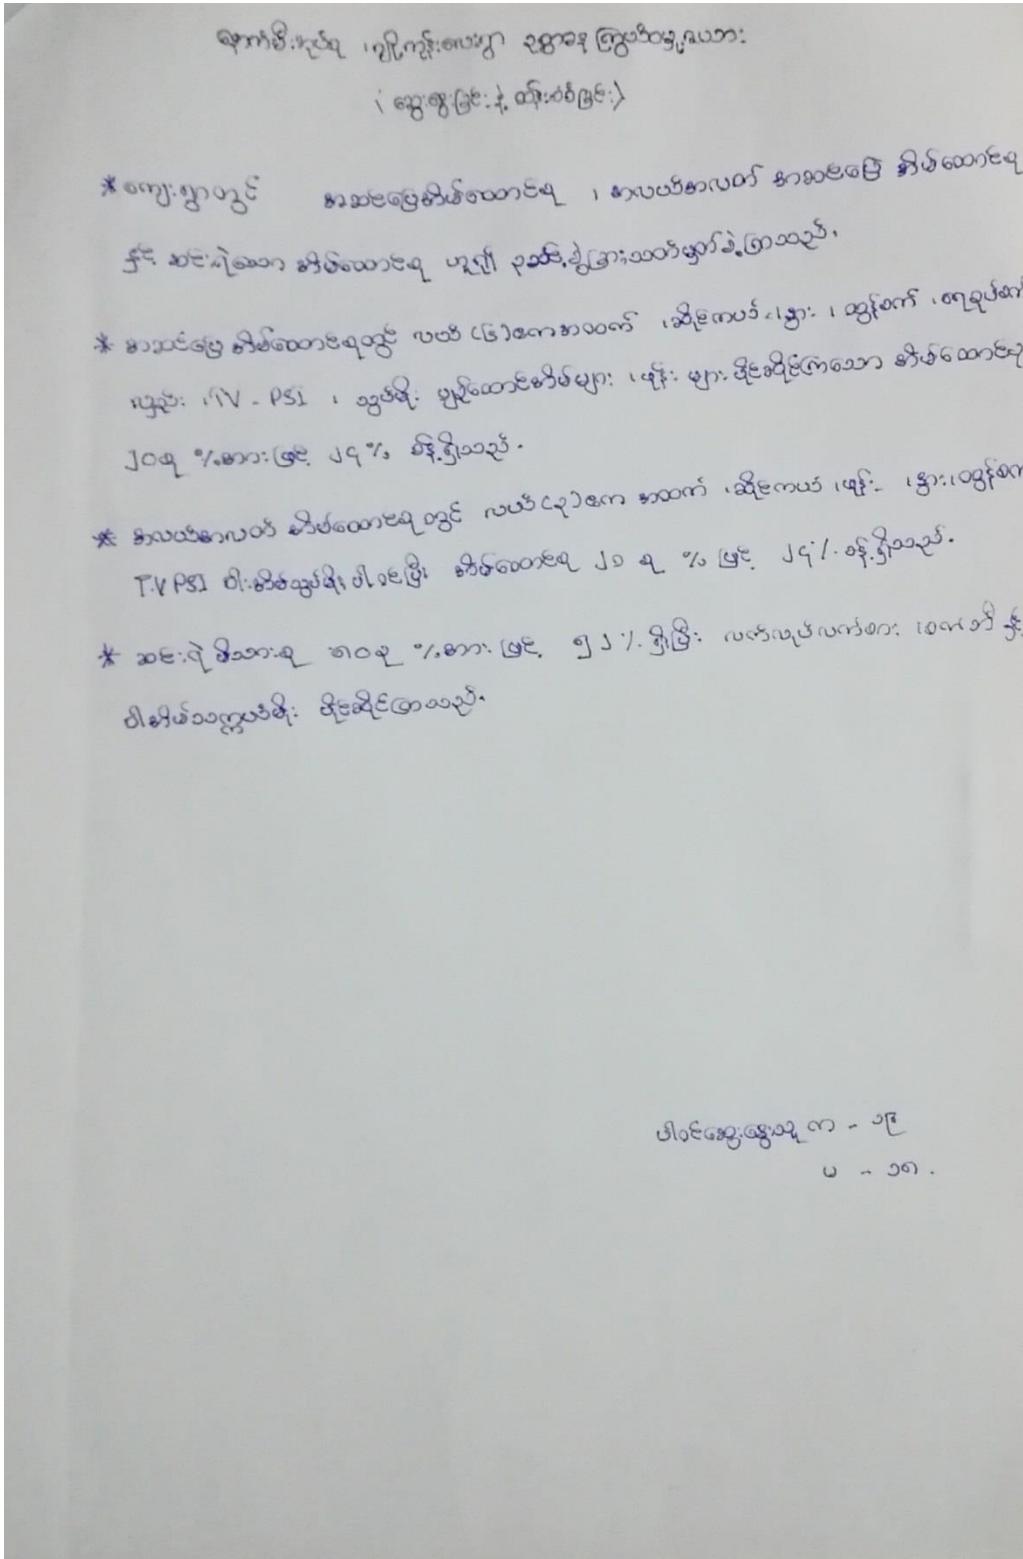 ရွာ ဥစ္စာဓန ကြွယ်ဝမှုဇယား
(ဆွေးနွေးခြင်းနဲ့ ထိုးစစ်ခြင်း)
* ကျေးရွာတွင် အဆင်ပြေအိမ်ထောင်စု ၊ အလယ်အလတ် အဆင်ပြေ အိမ်ထောင်စု
နှင့် ဆင်းရဲသော အိမ်ထောင်စု ဟူ၍ ၃ဆင့်ခွဲခြားသတ်မှတ်ခဲ့ကြသည်.
* အဆင်ပြေ အိမ်ထောင်စုတွင် လယ် (၆)ဧကအထက် ၊ဆိုင်ကယ် ၊နွား ၊ ထွန်စက် ၊ရေစုပ်စက်
လှည်း ၊TV - PSI ၊ သွပ်မိုး ပျဉ်ထောင်အိမ်များ ၊ဖုန်း များ ပိုင်ဆိုင်ကြသော အိမ်ထောင်စု
၂၀စု %အားဖြင့် ၂၄% ခန့်ရှိသည်.
* အလယ်အလတ် အိမ်ထောင်စုတွင် လယ် (၃)ဧက အထက် ၊ဆိုင်ကယ် ၊ဖုန်း ၊နွား၊ထွန်စက်
T.V PSI ဝါးအိမ်သွပ်မိုး ပါဝင်ပြီး အိမ်ထောင်စု ၂၁ စု % ဖြင့် ၂၄% ခန့်ရှိသည်.
* ဆင်းရဲ မိသားစု ၈၀စု %အားဖြင့် ၅၂% ရှိပြီး လက်လုပ်လက်စား နှင့်
ဝါးအိမ်သက္ကယ်မိုး ပိုင်ဆိုင်ကြသည်.
ပါဝင်ဆွေးနွေးသူ က - ၁၉
မ - ၁၈ .